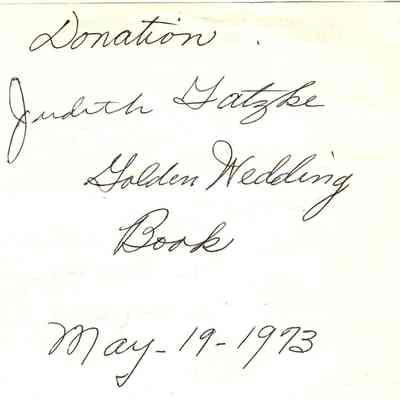 Donation.
Judith Gatzke
Golden Wedding
Book
May-19-1973